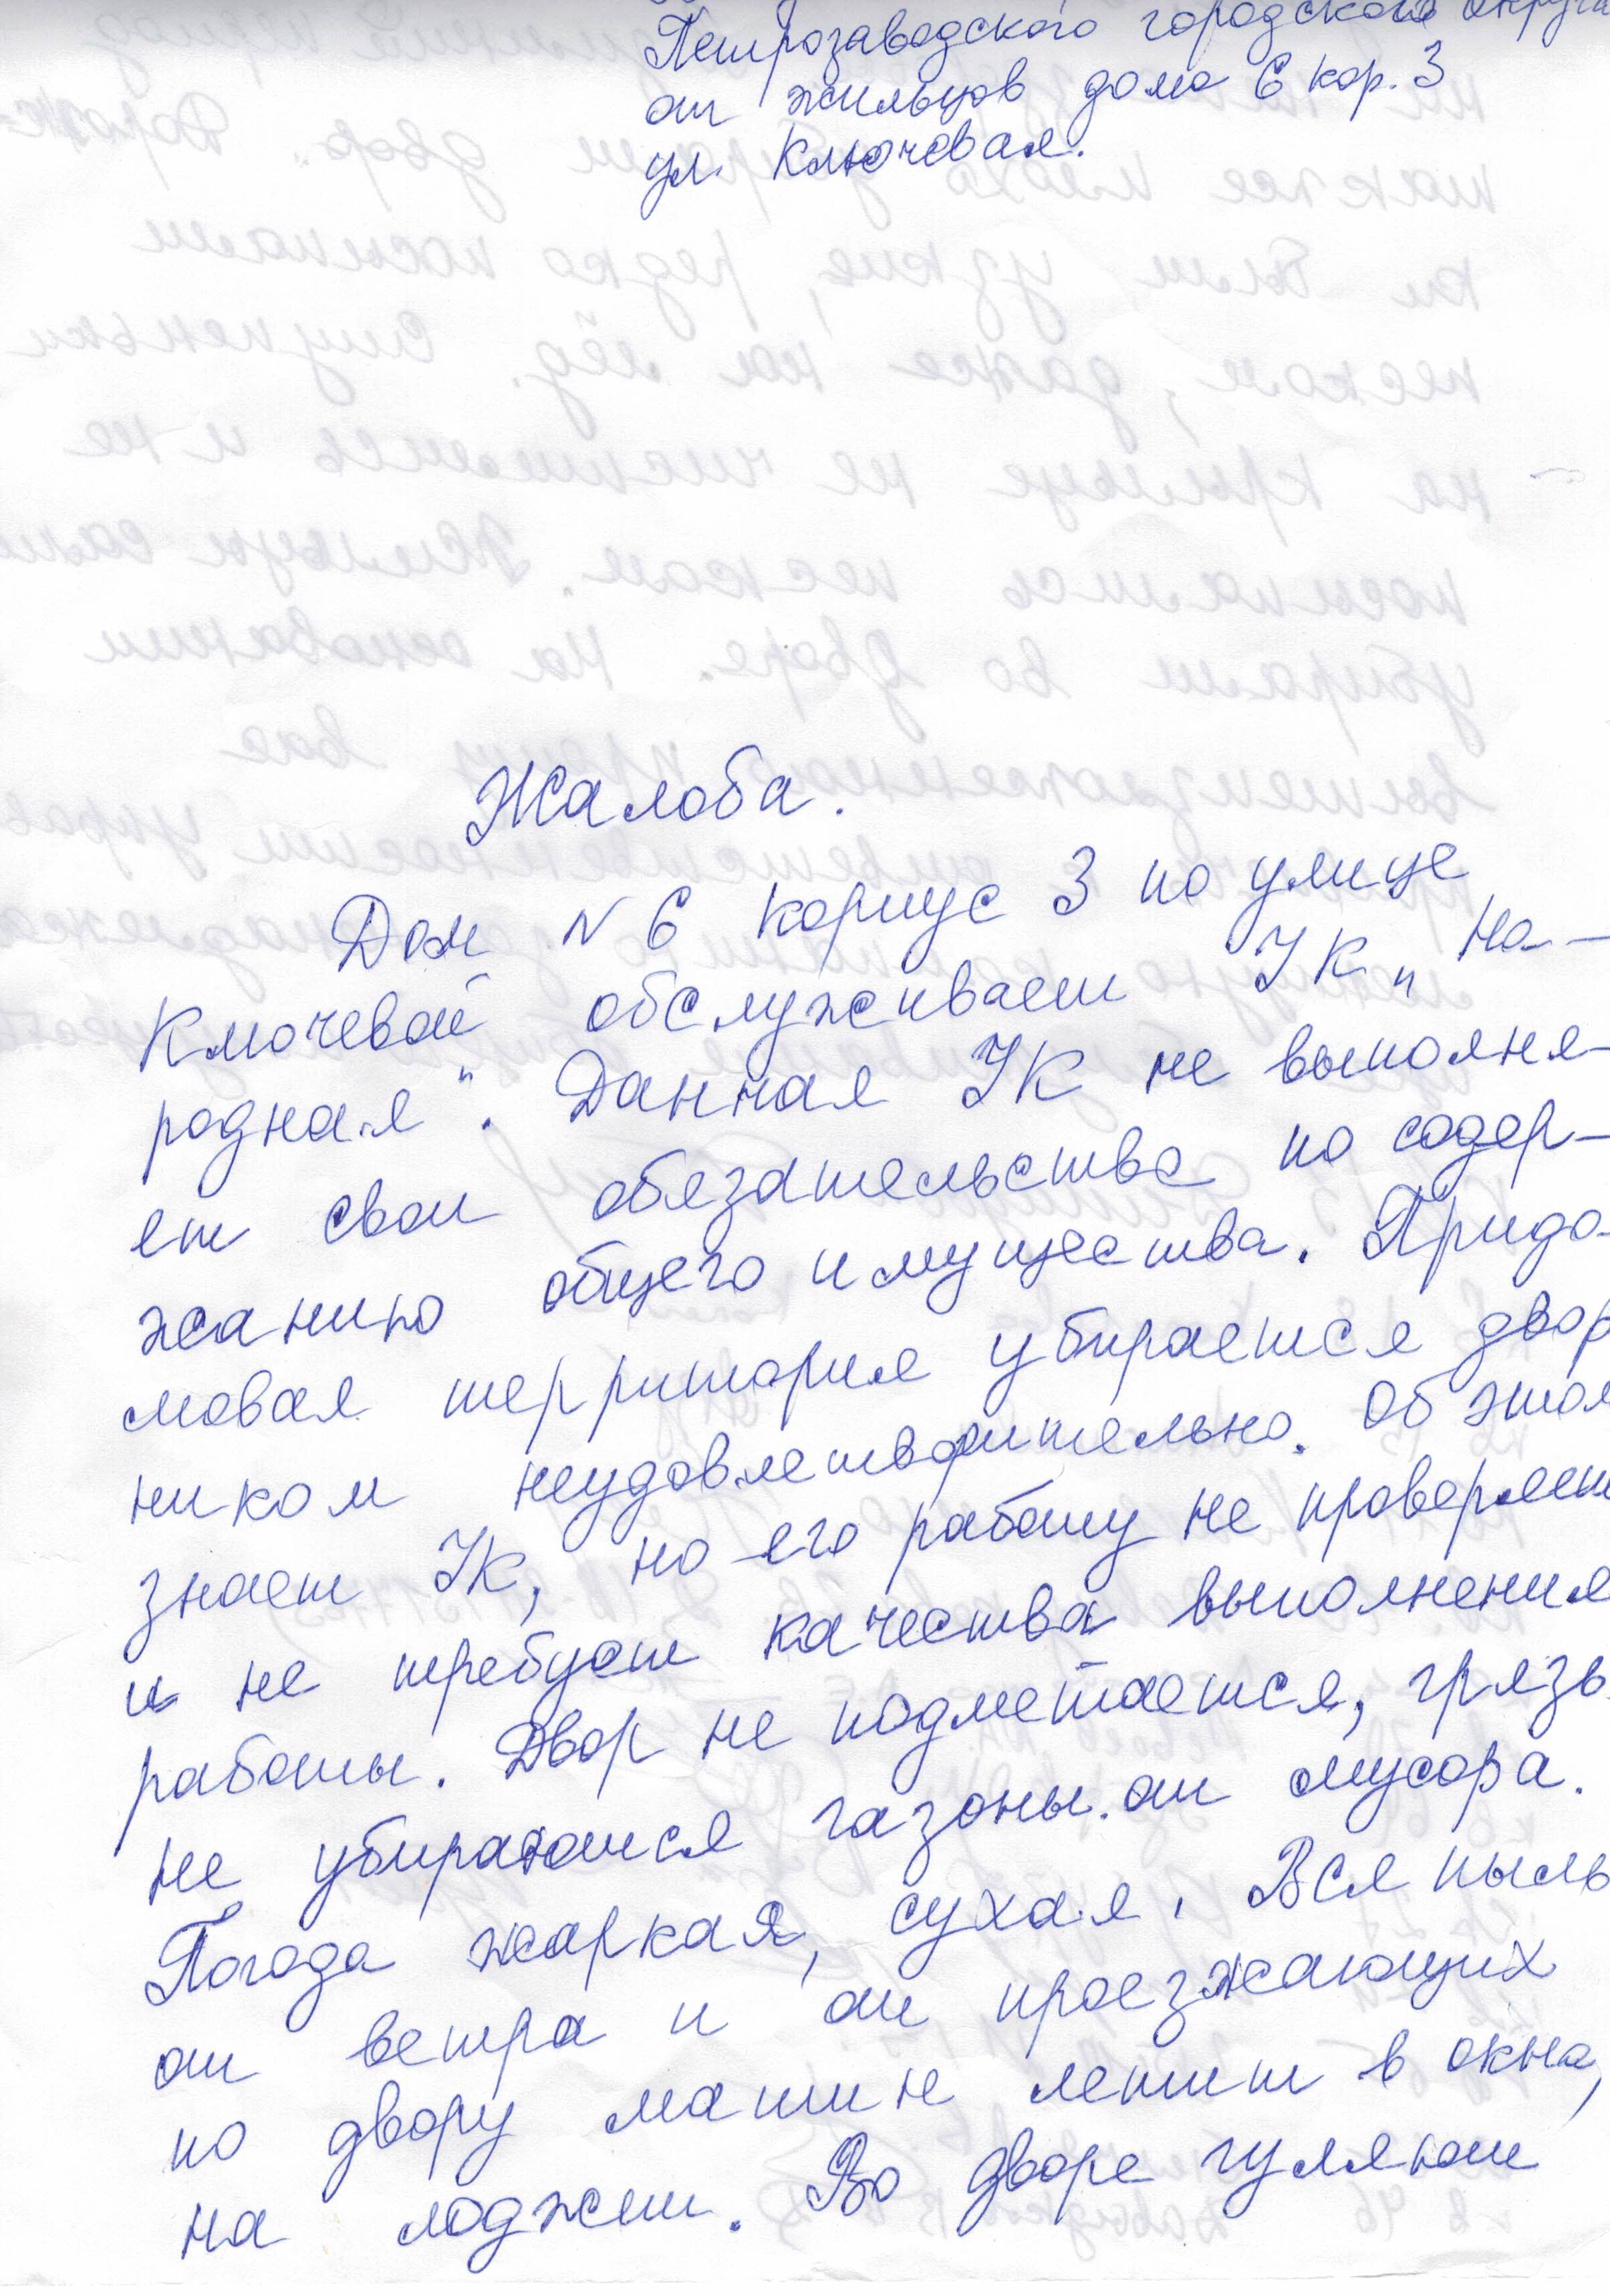 Петрозаводского городского округа
от жильцов дома 6 кор. 3
ул. Ключевая.
Жалоба.
Дом N 6 корпус 3 по улице
Ключевой обслуживает УК „На-
родная". Данная УК не выполня-
ет свои обязательства по содер-
жанию общего имущества. Придо-
мовая территория убирается двор
ником неудовлетворительно. Об этом
знает УК, но его работу не проверяет
и не требует качества выполнения
работы. Двор не подметается, грязь
не убираются газоны от мусора.
Погода жаркая, сухая. Вся пыль
от ветра и от проезжающих
по двору машин летит в окна,
на лоджии. Во дворе гуляют